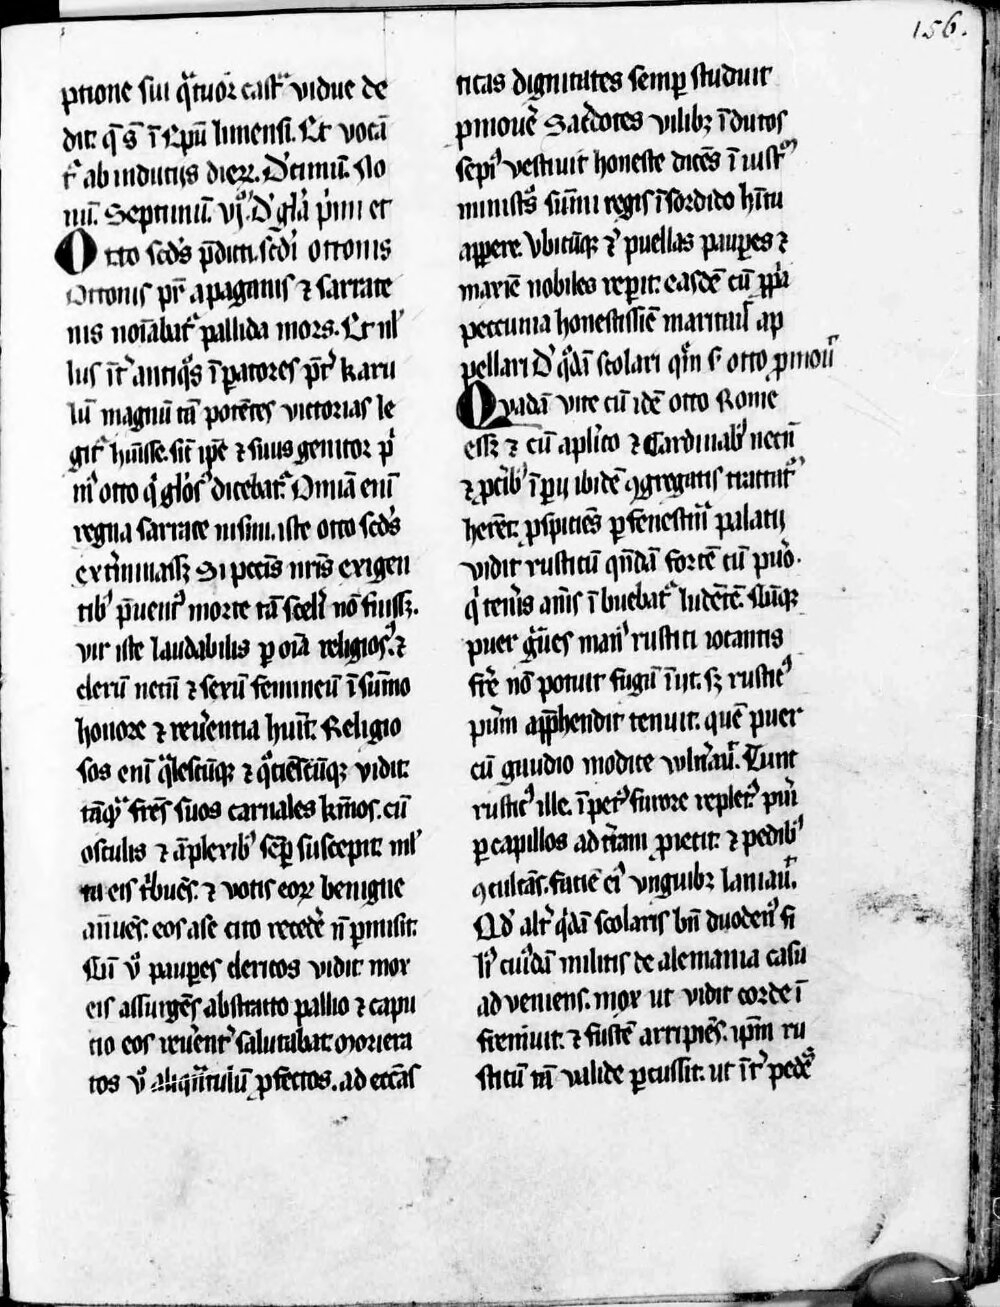 156.
ptione sui q̃tuor cast̃ vidue de
dit. q̃ s̃ ĩ ep̃u limensi. Et vocã
t᷑ ab inducijs dieꝝ. Dcimũ. No
nũ. Septimũ. vj. D' gl̃a p'mi et
Otto scd's p̃dicti. scd'i ottonis
Ottonis pr̃ a paganis ⁊ sarrace
nis noĩabat᷑ pallida mors. Et nl'
lus ĩt' antiq̃s ĩperatores p̃t' karu
lũ magnũ tã potẽtes victorias le
git᷑ hũisse. sic̃ ip̃e ⁊ suus genitor p'
m' otto q' gl̃os' dicebat᷑. Omĩa enĩ
regna sarrace nisim. iste otto scd's
ext'minasꝫ Si pcc̃is nr̃is exigen
tib' p̃uent' morte tã scel' nõ fuisꝫ.
vir iste laudabilis ꝑ oĩa religios'. ⁊
clerũ necnĩ ⁊ sexũ femineũ ĩ sũmo
honore ⁊ reu'entia hũit. Religio
sos enĩ q̃lescũqꝫ ⁊ q̃ciescũqꝫ vidit.
tãq̃ fr̃es suos carnales kr̃mos. cũ
osculis ⁊ ãplexib' sẽꝑ suscepit. ml'
ta eis t'buẽs. ⁊ votis eoꝝ benigne
ãnuẽs. eos a se cito recede' ñ ꝑmisit.
Cũ v̊ pauꝑes clericos vidit mox
eis assurgẽs abstracto pallio ⁊ capu
cio eos reu'ent' salutabat moriera
tos v̊ aliq̃ntulũ ꝓfectos. ad ecc̃as
ticas dignitates semꝑ studuit
ꝓmoue' Sac'dotes vilibꝫ ĩdutos
sepi' vestiuit honeste dicẽs ĩiust᷑
minist's sũmi regis ĩ sordido hĩtu
aꝑꝑere. Vbicũqꝫ t' puellas pauꝑes ⁊
marie nobiles reꝑit. easdẽ cũ ꝓp'a
peccunia honestissĩe maritauit ap
pellari D' q̃dã scolari q̃m s' otto ꝓmou᷑
Quadã vice cũ idẽ otto Rome
essꝫ ⁊ cũ apl'ico ⁊ Cardinalib' necñ
⁊ p̃cib' ĩꝑij ibidẽ ꝯgregatis tractat᷑
herẽt. ꝓspiciẽs ꝑ fenestrã palacij
vidit rusticũ quendã fortẽ cũ pu'o.
q' ten'is ãnis ĩbuebat᷑ ludẽtẽ. Cũqꝫ
puer g'ues man' rustici iocantis
fr̃e nõ potuit fugũ ĩijt. sꝫ rustic'
pu'm app̃hendit tenuit. quẽ puer
cũ gaudio modice vuln'au᷑. Tunc
rustic' ille. ĩpet' furore replet' pu'ũ
ꝑ capillos ad t'ram ꝓiecit. ⁊ pedib'
ꝯculcãs. faciẽ ei' vnguibꝫ laniau᷑.
Qd' alt' q̃dã scolaris bñ duoden' fi
li' cui'dã militis de alemania casu
adueniens. mox ut vidit corde ĩ
fremuit. ⁊ fustẽ arripiẽs. ip̃m ru
sticũ tã valide ꝑcussit. ut ĩt' pede᷑